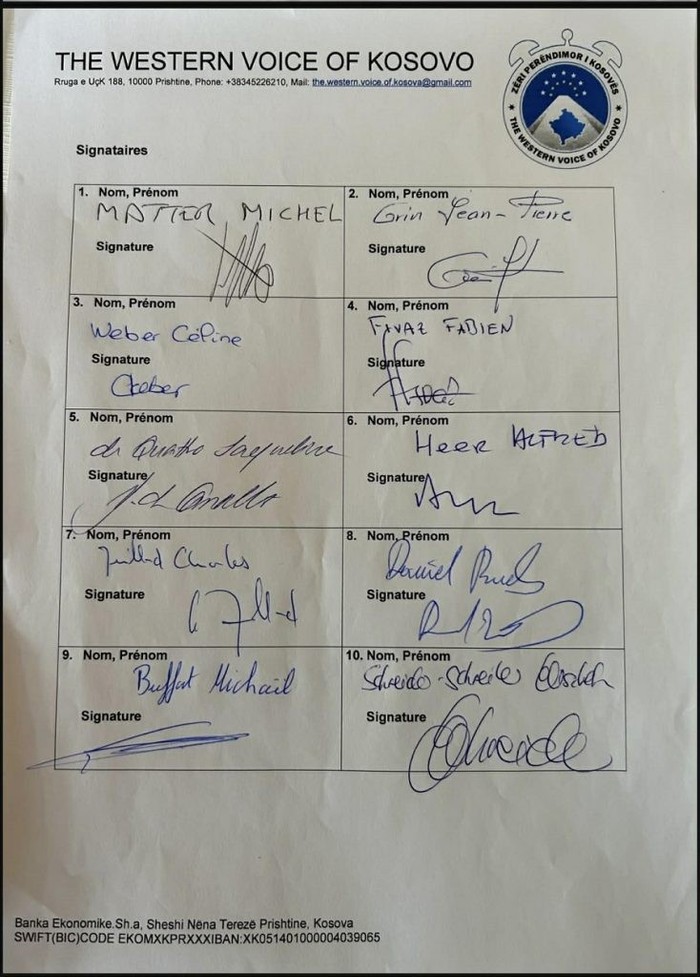 THE WESTERN VOICE OF KOSOVO
Rruga e UçK 188, 10000 Prishtine, Phone: +38345226210, Mail: the.western.voice.of.kosova@gmail.com
ZËRI PERËNDIMOR I KOSOVËS
THE WESTERN VOICE OF KOSOVO
Signataires
1. Nom, Prénom
MATTER MICHEL
Signature
2. Nom, Prénom
Grin Jean-Pierre
Signature
3. Nom, Prénom
Weber Céline
Signature
CWeber
4. Nom, Prénom
FIVAZ FABIEN
Signature
5. Nom, Prénom
de Quattro Jacqueline
Signature
J. de Quattro
6. Nom, Prénom
Heer ALFRED
Signature
7. Nom, Prénom
Juillard Charles
Signature
8. Nom, Prénom
Daniel Ruch
Signature
9. Nom, Prénom
Buffat Michaël
Signature
10. Nom, Prénom
Schneider-Schneiter Elisabeth
Signature
Banka Ekonomike.Sh.a, Sheshi Nëna Terezë Prishtine, Kosova
SWIFT(BIC)CODE EKOMXKPRXXXIBAN:XK051401000004039065